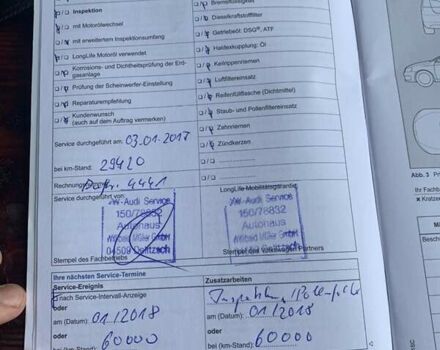 Bremsflüssigkeit
Inspektion
Dieselkraftstofffilter
mit Motorölwechsel
Getriebeöl: DSG®, ATF
mit erweitertem Inspektionsumfang
Haldexkupplung: Öl
LongLife Motoröl verwendet
Keilrippenriemen
Korrosions- und Dichtheitsprüfung der Erd-
gasanlage
Luftfiltereinsatz
Prüfung der Scheinwerfer-Einstellung
Reifenfüllflasche (Dichtmittel)
Reparaturempfehlung
Staub- und Pollenfiltereinsatz
Kundenwunsch
(auch auf dem Auftrag vermerken)
Zahnriemen
Zündkerzen
Service durchgeführt am: 03.01.2017
bei km-Stand: 29420
4441
Service durchgeführt von:
LongLife-Mobilitätsgarantie
Audi Service
150/78832
Autohaus
GmbH
04509 Delitzsch
Stempel des Fachbetriebs
Audi Service
150/78832
Autohaus
GmbH
Stempel des Volkswagen Partners
Ihre nächsten Service-Termine
Service-Ereignis
nach Service-Intervall-Anzeige
oder
am (Datum): 01/2018
oder
bei (km-Stand): 60000
Zusatzarbeiten
oder
am (Datum): 01/2018
oder
bei (km-Stand): 60000
Abb. 3
Ihr Fach
Kratze
Besch